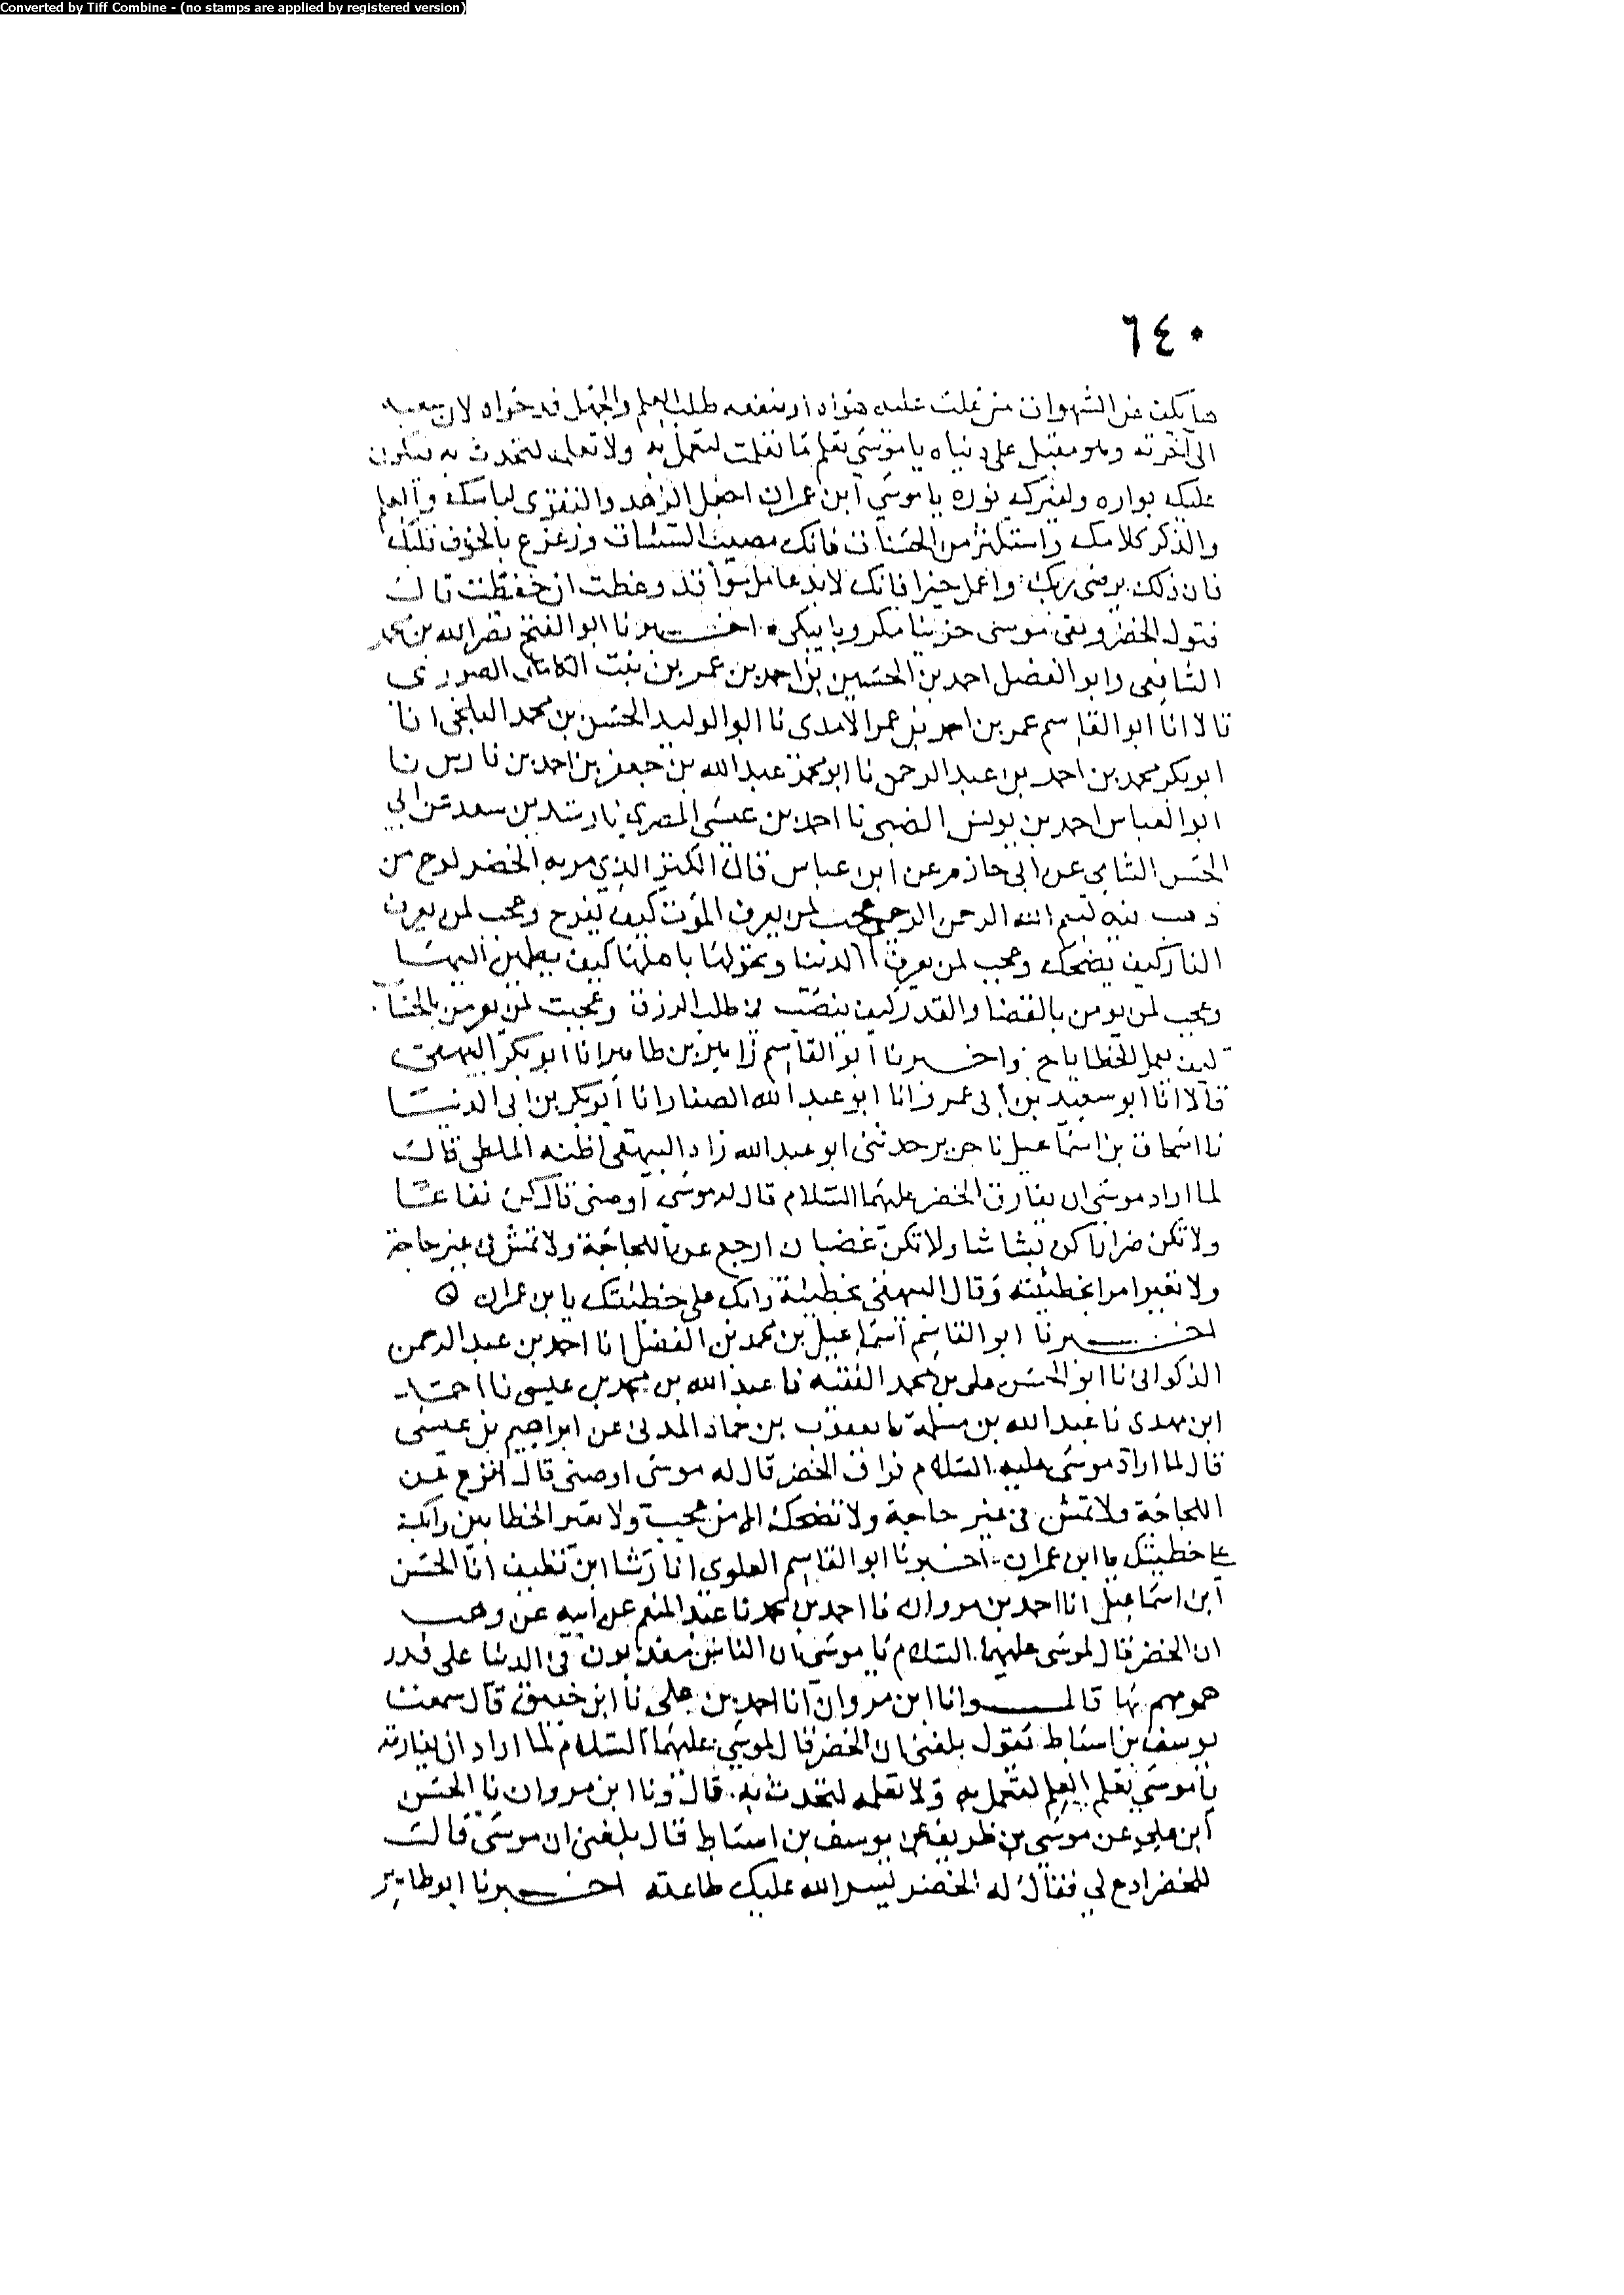 Converted by Tiff Combine - (no stamps are applied by registered version)
٦٤٠
هل يكف عن الشهوات من غلب عليه هواه او ينفعه طلب العلم والجهل قد حواه لان سعيه
الى اخرته وهو مقبل على دنياه يا موسى تعلم ما تعلمت لتعمل به ولا تعلمه لتحدث به فيكون
عليك بواره ولغيرك نوره يا موسى ابن عمران اجعل الزهد والتقوى لباسك والعلم
والذكر كلامك واستكثر من الحسنات فانك مصيب السيئات وزعزع بالخوف قلبك
فان ذلك يرضى ربك واعمل خيرا فانك لابد عامل سوا قد وعظت ان حفظت قال
فتولى الخضر وبقى موسى حزينا مكروبا يبكى اخبرنا ابو الفتح نصر الله بن محمد
الشافعى وابو الفضل احمد بن الحسين بن احمد بن عمر بن بنت الكاملى الصورى
قالا انا ابو القاسم عمر بن احمد بن عمر الامدى نا ابو الوليد الحسن بن محمد البلخى انا
ابو بكر محمد بن احمد بن عبد الرحمن نا ابو محمد عبد الله بن جعفر بن احمد بن فارس نا
ابو العباس احمد بن يونس الضبى نا احمد بن عيسى المصرى نا رشدين بن سعد عن ابى
الحسن الشامى عن ابى حازم عن ابن عباس قال الكنز الذى مر به الخضر لوح من
ذهب فيه بسم الله الرحمن الرحيم عجب لمن يعرف الموت كيف يفرح وعجب لمن يعرف
النار كيف يضحك وعجب لمن يعرف الدنيا وتحولها باهلها كيف يطمئن اليها
وعجب لمن يومن بالقضا والقدر كيف ينصب فى طلب الرزق وعجبت لمن يومن بالحساب
كيف يعمل الخطايا ح واخبرنا ابو القاسم زاهر بن طاهر انا ابو بكر البيهقى
قالا انا ابو سعيد بن ابى عمرو انا ابو عبد الله الصفار انا ابو بكر بن ابى الدنيا
نا اسحاق بن اسماعيل نا جرير حدثنى ابو عبد الله زاد البيهقى اظنه الملطى قال
لما اراد موسى ان يفارق الخضر عليهما السلام قال له موسى اوصنى قال كن نفاعا
ولا تكن ضرارا كن بشاشا ولا تكن غضبان ارجع عن اللجاجة ولا تمش فى غير حاجة
ولا تعير امرا بخطيئته وقال البيهقى بخطيئة وابك على خطيئتك يا بن عمران
اخبرنا ابو القاسم اسماعيل بن محمد بن الفضل انا احمد بن عبد الرحمن
الذكوانى نا ابو الحسن على بن محمد الفقيه نا عبد الله بن محمد بن عيسى نا احمد
ابن مهدى نا عبد الله بن مسلمة نا يعقوب بن حماد المدنى عن ابراهيم بن عيسى
قال لما اراد موسى عليه السلام فراق الخضر قال له موسى اوصنى قال انزع عن
اللجاجة ولا تمش فى غير حاجة ولا تضحك الا من عجب ولا تعير الخطايين وابك
على خطيتك يا ابن عمران اخبرنا ابو القاسم العلوى انا رشا ابن نظيف انا الحسن
ابن اسماعيل انا احمد بن مروان نا احمد بن محمد نا عبد المنعم عن ابيه عن وهب
ان الخضر قال لموسى عليهما السلام يا موسى ان الناس معذبون فى الدنيا على قدر
همومهم بها قال وانا ابن مروان انا احمد بن على نا ابن خبيق قال سمعت
يوسف بن اسباط يقول بلغنى ان الخضر قال لموسى عليهما السلام لما اراد ان يفارقه
يا موسى تعلم العلم لتعمل به ولا تعلمه لتحدث به قال ونا ابن مروان نا الحسن
ابن على عن موسى بن طريف عن يوسف بن اسباط قال بلغنى ان موسى قال
للخضر ادع لى فقال له الخضر يسر الله عليك طاعته اخبرنا ابو طاهر